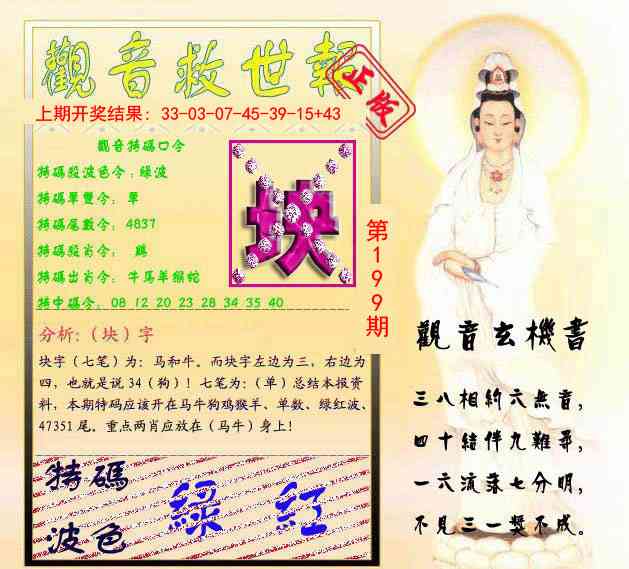 觀音救世報
正版
上期开奖结果：33-03-07-45-39-15+43
觀音特碼口令
特碼殺波色令：綠波
特碼單雙令：單
特碼尾數令：4837
特碼殺肖令：鷄
特碼出肖令：牛馬羊猴蛇
特中碼令：08 12 20 23 28 34 35 40
块
第199期
分析:（块）字
块字（七笔）为：马和牛。而块字左边为三，右边为
四，也就是说 34（狗）！七笔为：（单）总结本报资
料，本期特码应该开在马牛狗鸡猴羊、单数、绿红波、
47351 尾。重点两肖应放在（马牛）身上！
特碼
波色
綠 紅
觀音玄機書
三八相約六無音，
四十結伴九難尋，
一六流落七分明，
不見三一獎不成。